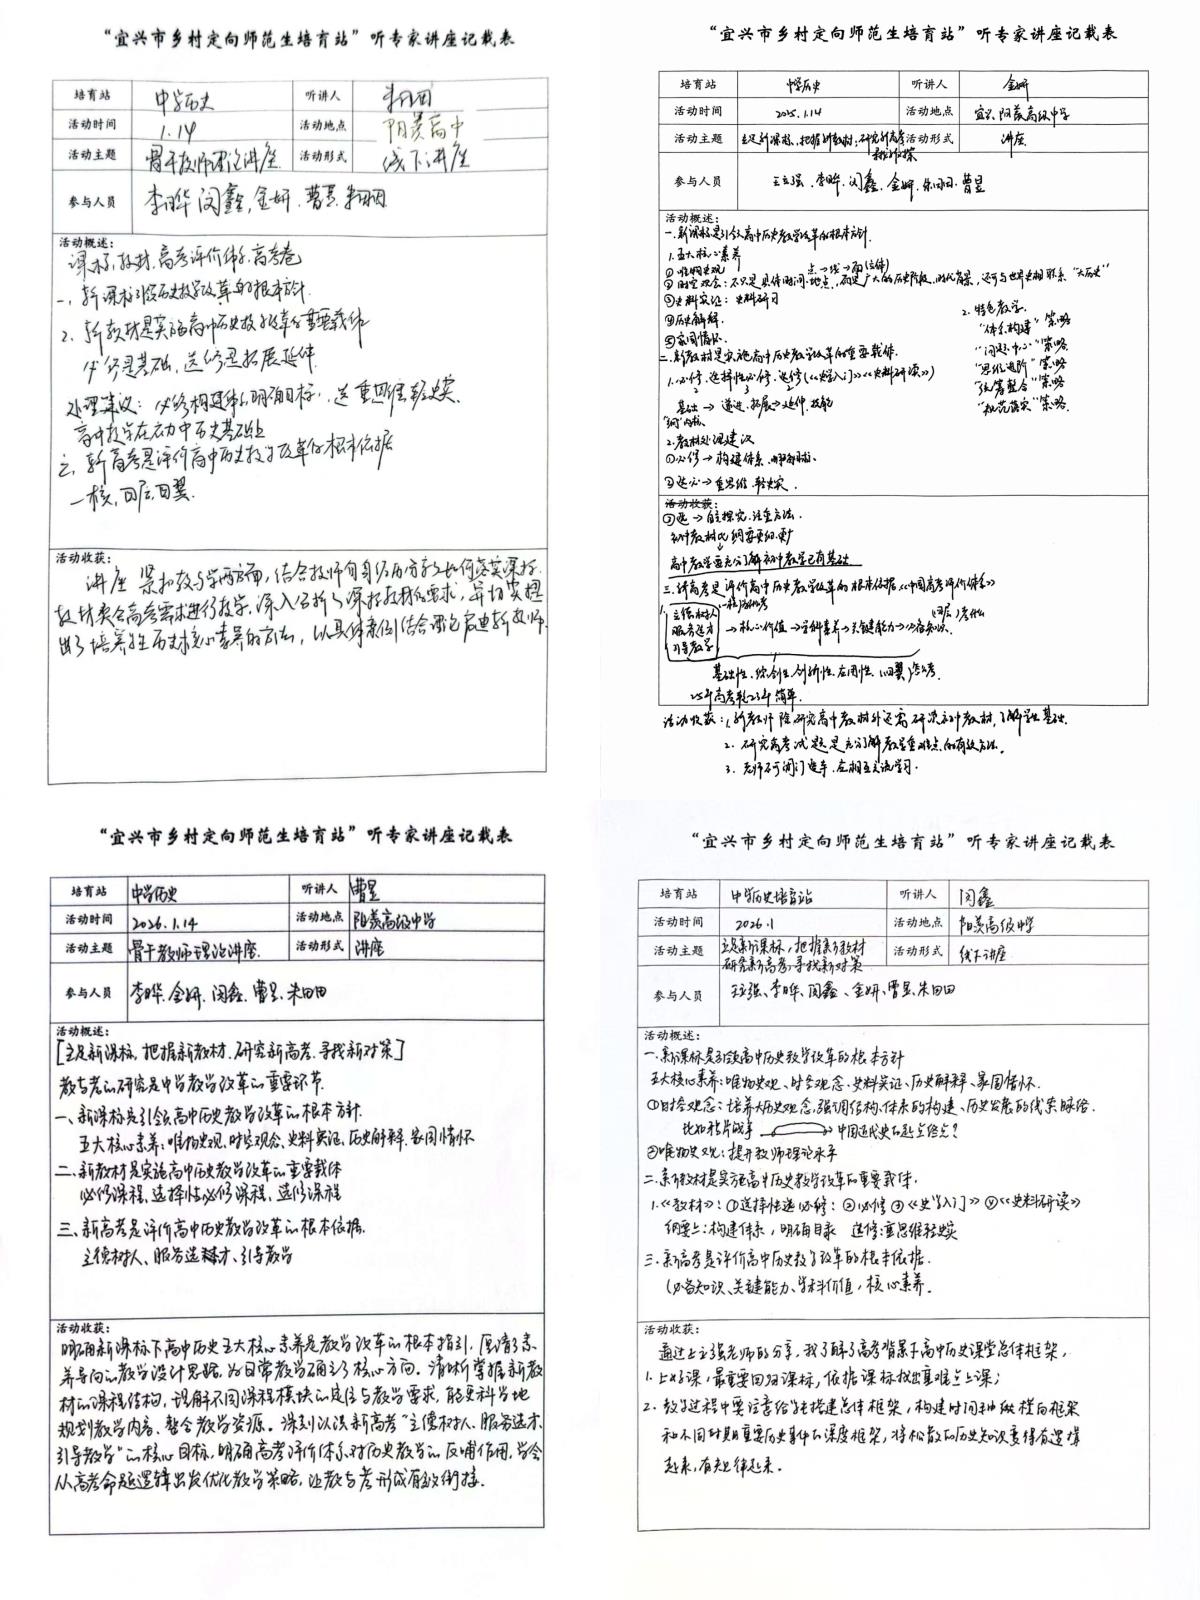 “宜兴市乡村定向师范生培育站”听专家讲座记载表
培育站 中学历史 听讲人 朱田田
活动时间 1.14 活动地点 阳羡高中
活动主题 骨干教师理论讲座 活动形式 线下讲座
参与人员 李晔 闵鑫, 金妍 曹昱 朱田田
活动概述:
课标, 教材, 高考评价体系, 高考卷
一、新课标引领历史教学改革的根本方针
2. 新教材是实施高中历史教学改革的重要载体
必修是基础, 选修是拓展延伸
处理建议: 必修构建体系明确目标, 选重思维轻史实
高中教学在初中历史基础上
三、新高考是评价高中历史教学改革的根本依据
一核, 四层, 四翼.
活动收获:
讲座紧扣教与学两方面, 结合教师自身经历分享了如何落实课标
教材契合高考需求进行教学, 深入分析了课标教材的要求, 并切实提
出了培养学生历史核心素养的方法, 以具体案例结合理论启迪新教师.
“宜兴市乡村定向师范生培育站”听专家讲座记载表
培育站 中学历史 听讲人 金妍
活动时间 2025.1.14 活动地点 宜兴阳羡高级中学
活动主题 立足新课标、把握新教材; 研究新高考 活动形式 讲座
寻找新对策
参与人员 王立强、李晔、闵鑫、金妍、朱田田、曹昱
活动概述:
一、新课标是引领高中历史教学改革的根本方针.
1. 五大核心素养
① 唯物史观 点→线→面(立体)
② 时空观念: 不只是具体时间、地点, 而是广大的历史阶段、时代背景, 还可与世界史相联系 “大历史”
③ 史料实证: 史料研习
④ 历史解释.
⑤ 家国情怀.
2. 特色教学.
“体系构建”策略
“问题中心”策略
“思维进阶”策略
“统筹整合”策略
“规范落实”策略.
二、新教材是实施高中历史教学改革的重要载体.
1. 必修、选择性必修、选修(《史学入门》《史料研读》)
2 3
基础 → 递进、拓展→延伸、技能
“纲”内核
2. 教材处理建议
① 必修→构建体系、明确目标.
② 选必→重思维、轻史实.
活动收获:
③ 选→自主探究、注重方法.
初中教材比纲要更细、更广
高中教学要充分了解初中教学已有基础
三、新高考是评价高中历史教学改革的根本依据《中国高考评价体系》
1. 立德树人 一核, 为什么考
服务选才 → 核心价值→学科素养→关键能力→必备知识. (四层)考什么
引导教学
基础性、综合性、创新性、应用性. (四翼)怎么考.
25年高考较23年简单.
活动收获: 1. 新教师除研究高中教材外还需研读初中教材, 了解学生基础.
2. 研究高考试题是充分了解教学重难点的有效方法.
3. 老师不可闭门造车, 应相互交流学习.
“宜兴市乡村定向师范生培育站”听专家讲座记载表
培育站 中学历史 听讲人 曹昱
活动时间 2026.1.14 活动地点 阳羡高级中学
活动主题 骨干教师理论讲座. 活动形式 讲座
参与人员 李晔、金妍、闵鑫、曹昱、朱田田
活动概述:
[立足新课标, 把握新教材、研究新高考、寻找新对策]
教与考的研究是中学教学改革的重要环节.
一、新课标是引领高中历史教学改革的根本方针.
五大核心素养: 唯物史观、时空观念、史料实证、历史解释、家国情怀
二、新教材是实施高中历史教学改革的重要载体
必修课程、选择性必修课程、选修课程
三、新高考是评价高中历史教学改革的根本依据.
立德树人、服务选才、引导教学
活动收获:
明确新课标下高中历史五大核心素养是教学改革的根本指引, 厘清了素
养导向的教学设计思路, 为日常教学确立了核心方向. 清晰掌握新教
材的课程结构, 理解不同课程模块的定位与教学要求, 能更科学地
规划教学内容、整合教学资源. 深刻认识新高考“立德树人、服务选才、
引导教学”的核心目标, 明确高考评价体系对历史教学的反哺作用, 学会
从高考命题逻辑出发优化教学策略, 让教与考形成有效衔接.
“宜兴市乡村定向师范生培育站”听专家讲座记载表
培育站 中学历史培育站 听讲人 闵鑫
活动时间 2026.1 活动地点 阳羡高级中学
活动主题 立足新课标, 把握新教材 活动形式 线下讲座
研究新高考, 寻找新对策
参与人员 王立强、李晔、闵鑫、金妍、曹昱、朱田田
活动概述:
一. 新课标是引领高中历史教学改革的根本方针
五大核心素养: 唯物史观、时空观念、史料实证、历史解释、家国情怀.
① 时空观念: 培养大历史观念, 强调结构、体系的构建、历史发展的线索脉络.
比如鸦片战争 中国近代史的起点终点?
② 唯物史观: 提升教师理论水平
二. 新教材是实施高中历史教学改革的重要载体.
1. 《教材》: ① 选择性选必修: ② 必修 ③《史学入门》④《史料研读》
纲要上: 构建体系, 明确目录 选修: 重思维轻史实
三. 新高考是评价高中历史教学改革的根本依据.
(必备知识、关键能力、学科价值, 核心素养.
活动收获:
通过王立强老师的分享, 我了解了高考背景下高中历史课堂总体框架,
1. 上好课, 最重要回归课标, 依据课标找出重难点上课;
2. 教学过程中要注意给学生搭建总体框架, 构建时间和纵横向框架
和不同时期重要历史事件的深度框架, 将松散的历史知识变得有逻辑
起来, 有规律起来.